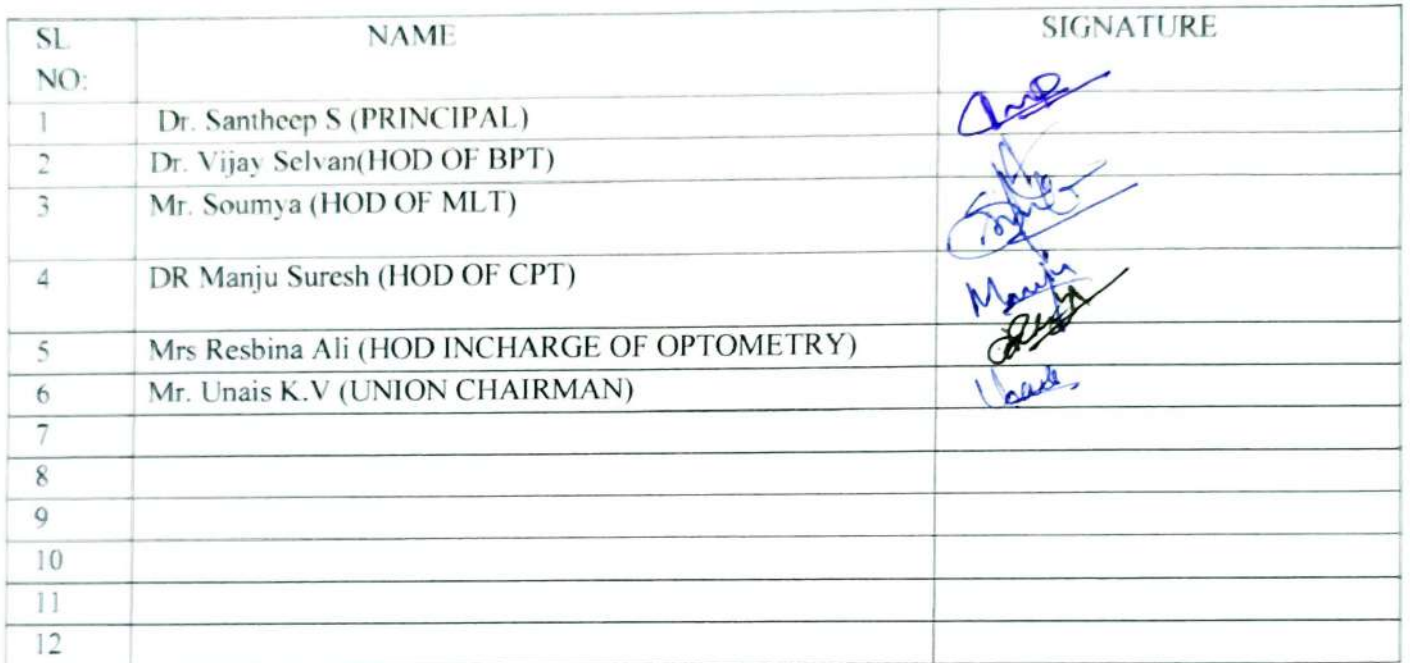 SL NO: NAME SIGNATURE
1 Dr. Santheep S (PRINCIPAL)
2 Dr. Vijay Selvan(HOD OF BPT)
3 Mr. Soumya (HOD OF MLT)
4 DR Manju Suresh (HOD OF CPT) Manju
5 Mrs Resbina Ali (HOD INCHARGE OF OPTOMETRY)
6 Mr. Unais K.V (UNION CHAIRMAN)
7
8
9
10
11
12